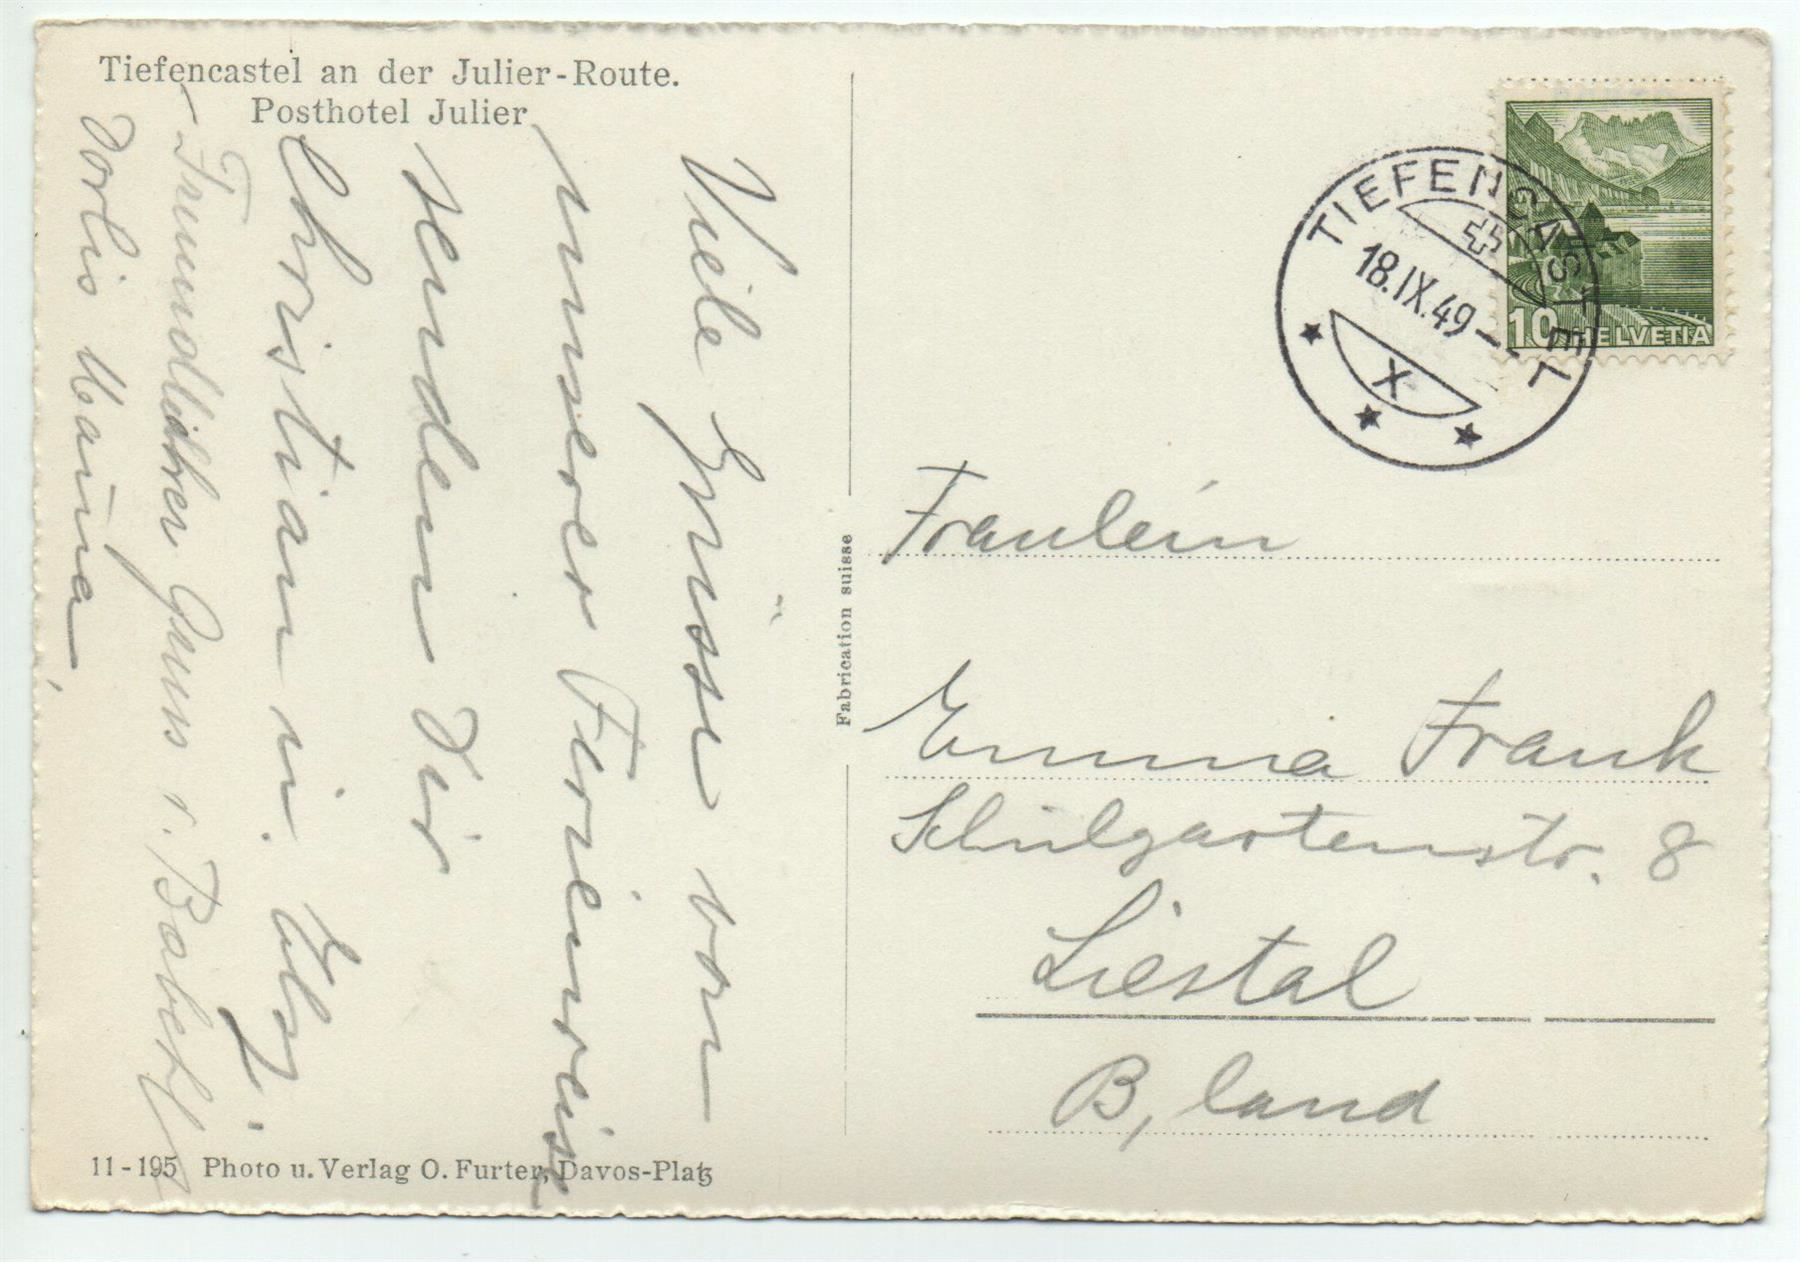 Tiefencastel an der Julier-Route.
Posthotel Julier
Viele Grüsse von
unserer Ferienreise
senden Dir
Christian u. Elsy.
Freundlichen Gruss v. Babett
Dorlis Mama
Fabrication suisse
11-195 Photo u. Verlag O. Furter, Davos-Platz
TIEFENCASTEL
18.IX.49
X
10 HELVETIA
Fraulein
Emma Frank
Schulgartenstr. 8
Liestal
B, land